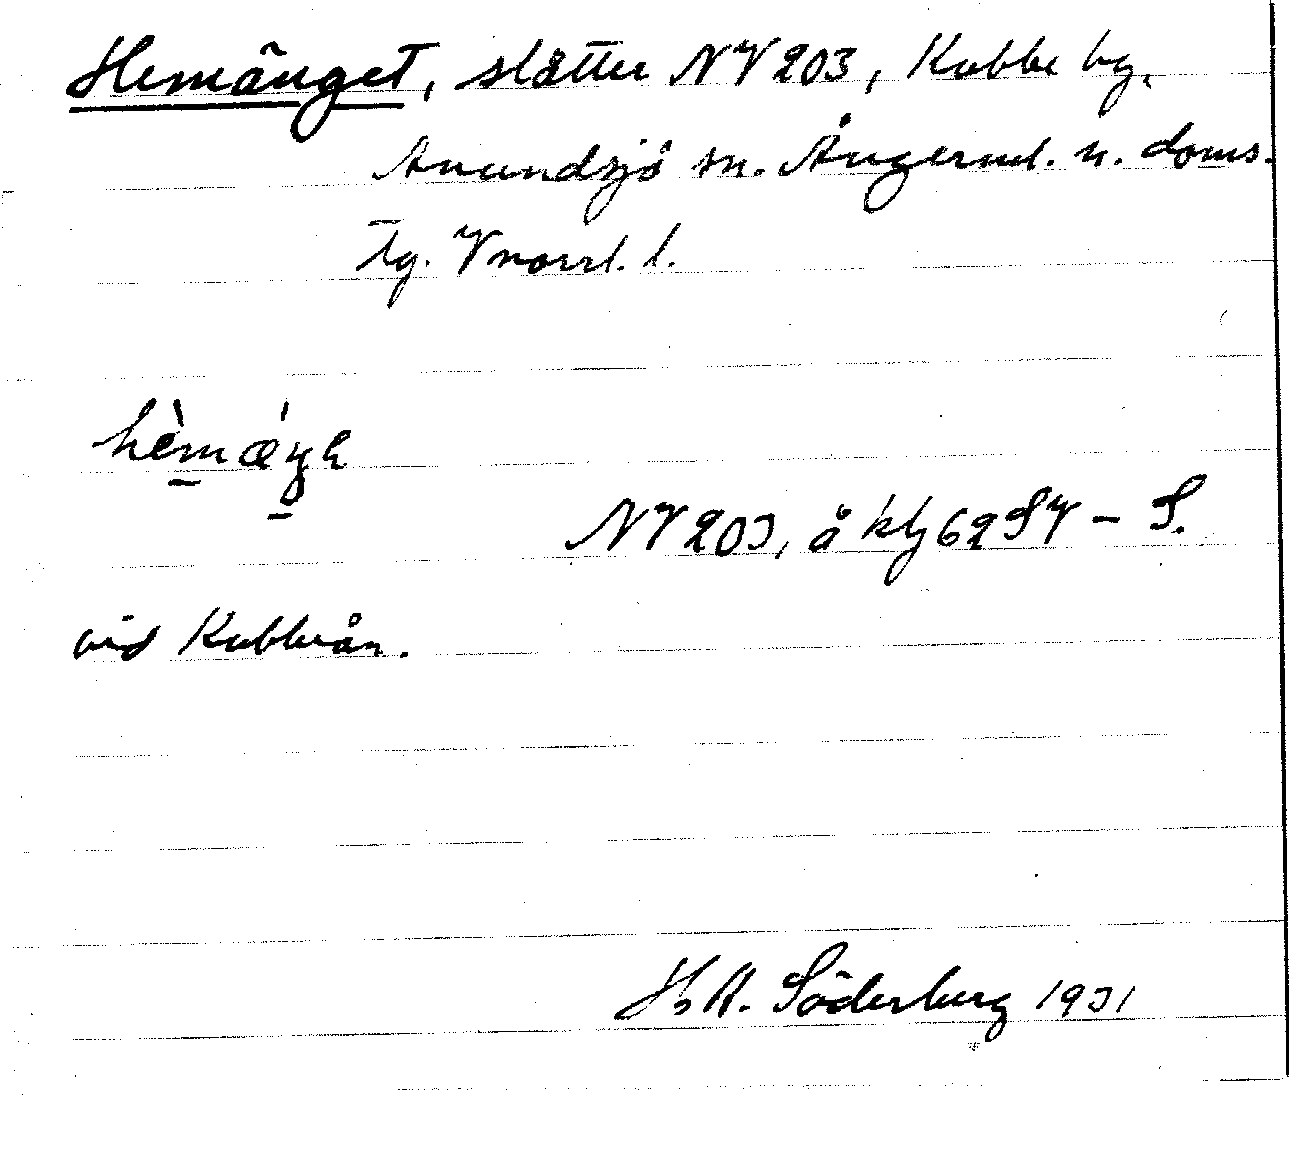 Hemänget, slåtter NV 203, Kubbe by.
Anundsjö sn. Ångerml. n. doms.
tg. Vnorrl. l.
hèmǽŋe
NV 203, å klj 62 SV – S.
vid Kubbeån.
H. A. Söderberg 1931